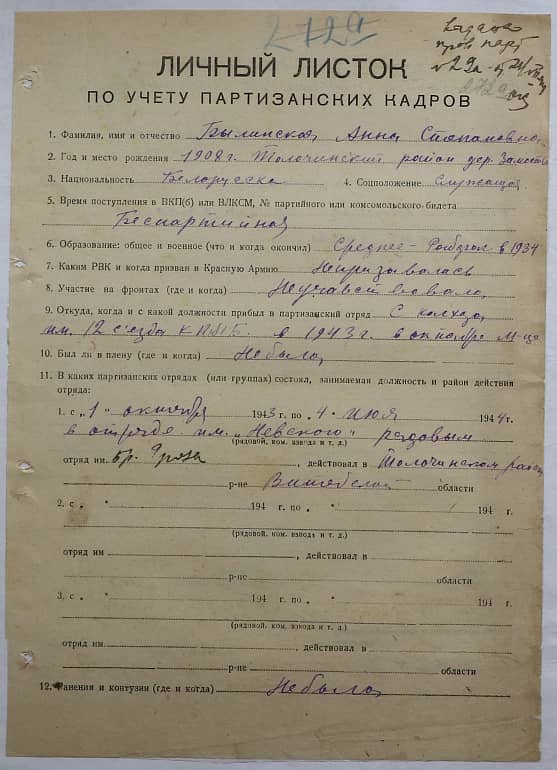 272а
ЛИЧНЫЙ ЛИСТОК
ПО УЧЕТУ ПАРТИЗАНСКИХ КАДРОВ
1. Фамилия, имя и отчество Былинская, Анна Степановна
2. Год и место рождения 1908 г. Толочинский район дер. Замостье
3. Национальность Белорусска 4. Соцположение Служащая
5. Время поступления в ВКП(б) или ВЛКСМ, № партийного или комсомольского билета
Беспартийная
6. Образование: общее и военное (что и когда окончил) Среднее - Рабфак в 1934
7. Каким РВК и когда призван в Красную Армию Непризывалась
8. Участие на фронтах (где и когда) Неучавствовала
9. Откуда, когда и с какой должности прибыл в партизанский отряд С колхоза
им. 12 съезда КПб/Б. в 1943 г. в октябре м-це
10. Был ли в плену (где и когда) Небыла
11. В каких партизанских отрядах (или группах) состоял, занимаемая должность и район действия
отряда:
1. с „1" октября 1943 г. по „4" июля 1944 г.
в отряде им. „Невского" рядовым
(рядовой, ком. взвода и т. д.)
отряд им. бр. Гроза, действовал в Толочинском районе
р-не Витебской области
2. с „ " 194 г. по „ " 194 г.
(рядовой, ком. взвода и т. д.)
отряд им , действовал в
р-не области
3. с „ " 194 г. по „ " 194 г.
(рядовой, ком. взвода и т. д.)
отряд им , действовал в
р-не области
12. Ранения и контузии (где и когда) Небыло